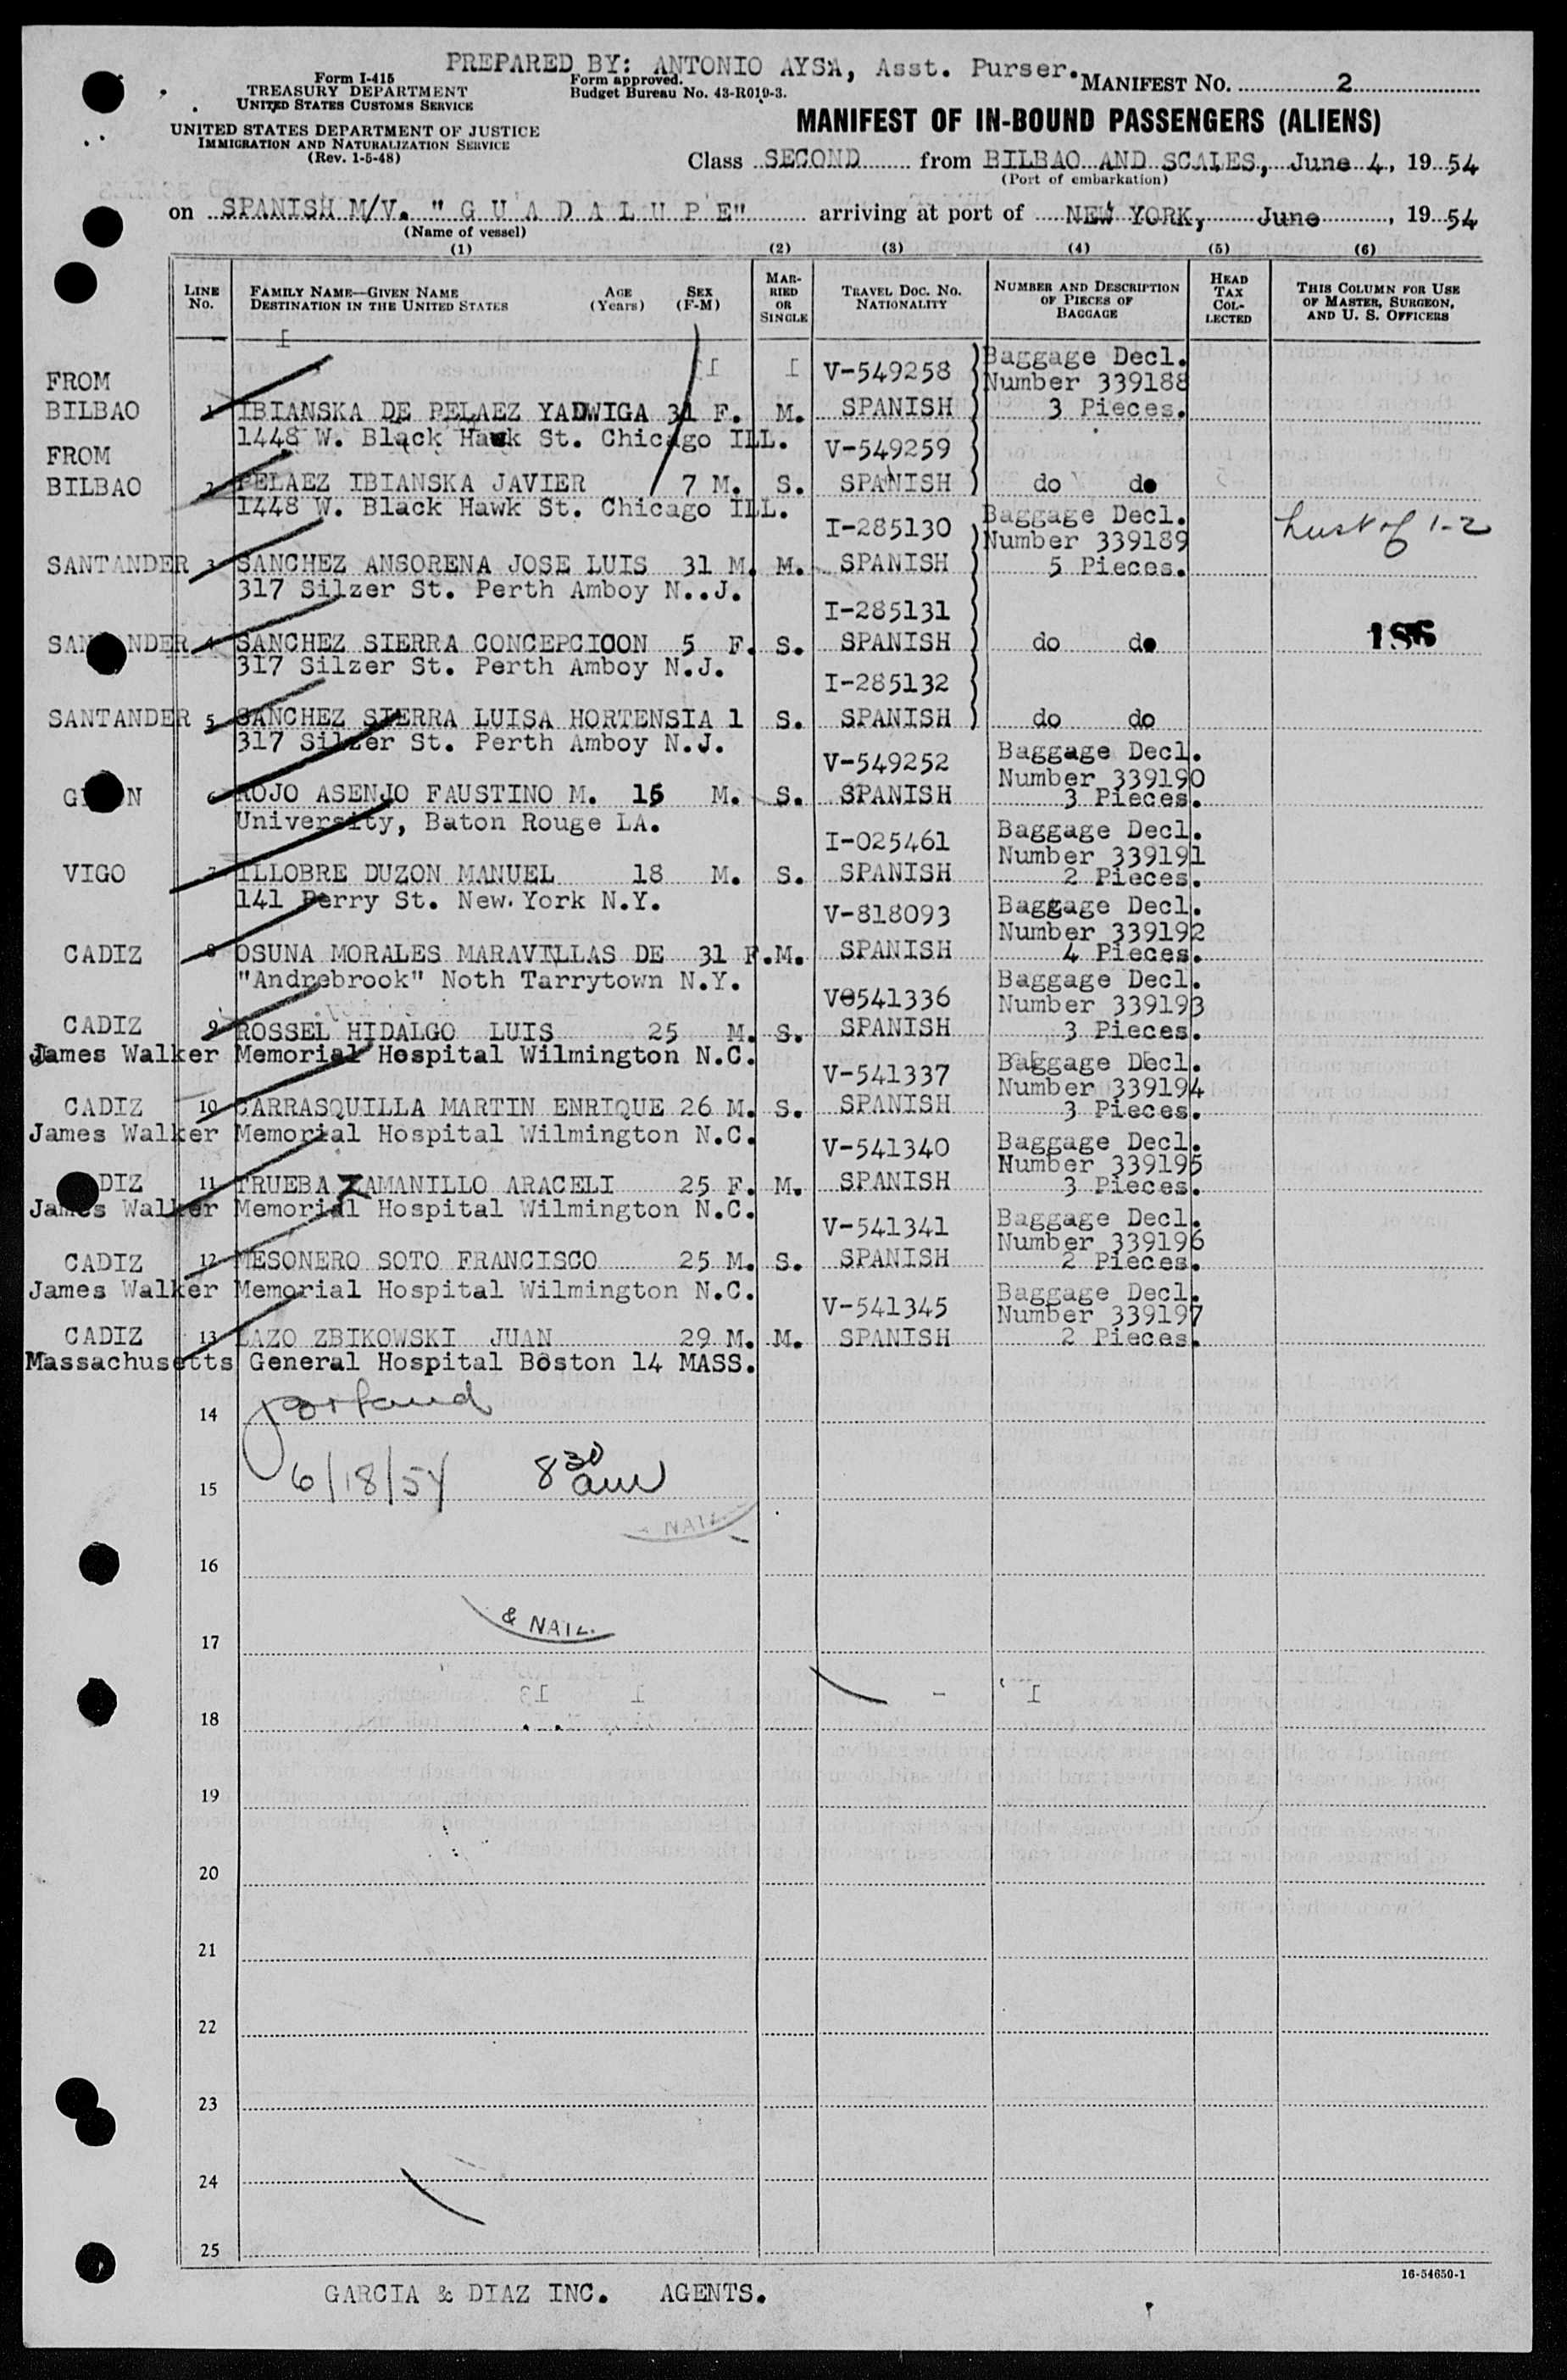 PREPARED BY: ANTONIO AYSA, Asst. Purser.
Form I-415
TREASURY DEPARTMENT
UNITED STATES CUSTOMS SERVICE
Form approved.
Budget Bureau No. 43-R019-3.
MANIFEST NO. 2
UNITED STATES DEPARTMENT OF JUSTICE
IMMIGRATION AND NATURALIZATION SERVICE
(Rev. 1-5-48)
MANIFEST OF IN-BOUND PASSENGERS (ALIENS)
Class SECOND from BILBAO AND SCALES, June 4, 1954
(Port of embarkation)
on SPANISH M/V. "G U A D A L U P E" arriving at port of NEW YORK, June, 1954
(Name of vessel)
(1) (2) (3) (4) (5) (6)
LINE No.
FAMILY NAME—GIVEN NAME AGE (Years) SEX (F-M)
DESTINATION IN THE UNITED STATES
MARRIED OR SINGLE
TRAVEL DOC. NO. NATIONALITY
NUMBER AND DESCRIPTION OF PIECES OF BAGGAGE
HEAD TAX COLLECTED
THIS COLUMN FOR USE OF MASTER, SURGEON, AND U. S. OFFICERS
FROM V-549258 Baggage Decl. Number 339188
BILBAO 1 IBIANSKA DE PELAEZ YADWIGA 31 F. M. SPANISH 3 Pieces.
1448 W. Black Hawk St. Chicago ILL.
FROM V-549259
BILBAO 2 PELAEZ IBIANSKA JAVIER 7 M. S. SPANISH do do
1448 W. Black Hawk St. Chicago ILL.
I-285130 Baggage Decl. Number 339189 1-2
SANTANDER 3 SANCHEZ ANSORENA JOSE LUIS 31 M. M. SPANISH 5 Pieces.
317 Silzer St. Perth Amboy N..J.
I-285131
SANTANDER 4 SANCHEZ SIERRA CONCEPCIOON 5 F. S. SPANISH do do 186
317 Silzer St. Perth Amboy N.J.
I-285132
SANTANDER 5 SANCHEZ SIERRA LUISA HORTENSIA 1 S. SPANISH do do
317 Silzer St. Perth Amboy N.J.
V-549252 Baggage Decl. Number 339190
GIJON 6 ROJO ASENJO FAUSTINO M. 15 M. S. SPANISH 3 Pieces.
University, Baton Rouge LA.
I-025461 Baggage Decl. Number 339191
VIGO 7 ILLOBRE DUZON MANUEL 18 M. S. SPANISH 2 Pieces.
141 Perry St. New York N.Y.
V-818093 Baggage Decl. Number 339192
CADIZ 8 OSUNA MORALES MARAVILLAS DE 31 F.M. SPANISH 4 Pieces.
"Andrebrook" Noth Tarrytown N.Y.
V-541336 Baggage Decl. Number 339193
CADIZ 9 ROSSEL HIDALGO LUIS 25 M. S. SPANISH 3 Pieces.
James Walker Memorial Hospital Wilmington N.C.
V-541337 Baggage Decl. Number 339194
CADIZ 10 CARRASQUILLA MARTIN ENRIQUE 26 M. S. SPANISH 3 Pieces.
James Walker Memorial Hospital Wilmington N.C.
V-541340 Baggage Decl. Number 339195
CADIZ 11 TRUEBA ZAMANILLO ARACELI 25 F. M. SPANISH 3 Pieces.
James Walker Memorial Hospital Wilmington N.C.
V-541341 Baggage Decl. Number 339196
CADIZ 12 MESONERO SOTO FRANCISCO 25 M. S. SPANISH 2 Pieces.
James Walker Memorial Hospital Wilmington N.C.
V-541345 Baggage Decl. Number 339197
CADIZ 13 LAZO ZBIKOWSKI JUAN 29 M. M. SPANISH 2 Pieces.
Massachusetts General Hospital Boston 14 MASS.
14
15 6/18/54 8 30 am
NAIL.
16
& NAIL.
17
18
19
20
21
22
23
24
25
16-54650-1
GARCIA & DIAZ INC. AGENTS.